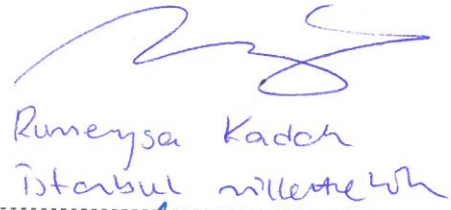 Rumeysa Kadak
İstanbul milletvekili